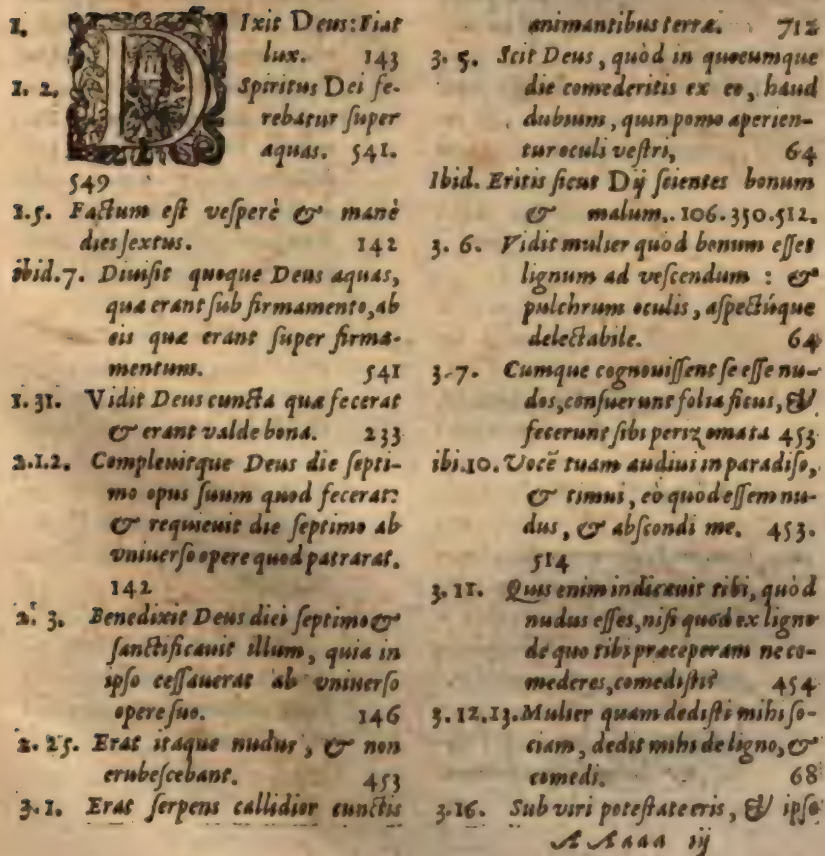 1. DIxit Deus: Fiat
lux. 143
1. 2. Spiritus Dei fe-
rebatur super
aquas. 541.
549
1.5. Factum est vesperè & manè
dies sextus. 142
ibid.7. Diuisit quoque Deus aquas,
quæ erant sub firmamento, ab
eis quæ erant super firma-
mentum. 541
1.31. Vidit Deus cuncta quæ fecerat
& erant valde bona. 233
2.1.2. Compleuitque Deus die septi-
mo opus suum quod fecerat:
& requieuit die septimo ab
vniuerso opere quod patrarat.
142
2. 3. Benedixit Deus diei septimo &
sanctificauit illum, quia in
ipso cessauerat ab vniuerso
opere suo. 146
2. 25. Erat itaque nudus, & non
erubescebant. 453
3.1. Erat serpens callidior cunctis
animantibus terræ. 712
3. 5. Scit Deus, quòd in quocumque
die comederitis ex eo, haud
dubium, quin pomo aperien-
tur oculi vestri, 64
Ibid. Eritis sicut Dij scientes bonum
& malum.. 106.350.512.
3. 6. Vidit mulier quòd bonum esset
lignum ad vescendum : &
pulchrum oculis, aspectúque
delectabile. 64
3.7. Cumque cognouissent se esse nu-
dos, consuerunt folia ficus, &
fecerunt sibi perizomata 453
ibi.10. Vocē tuam audiui in paradiso,
& timui, eò quod essem nu-
dus, & abscondi me. 453.
514
3.11. Quis enim indicauit tibi, quòd
nudus esses, nisi quòd ex ligno
de quo tibi præceperam ne co-
mederes, comedisti? 454
3.12.13. Mulier quam dedisti mihi so-
ciam, dedit mihi de ligno, &
comedi. 68
3.16. Sub viri potestate eris, & ipse
AAaaa iij